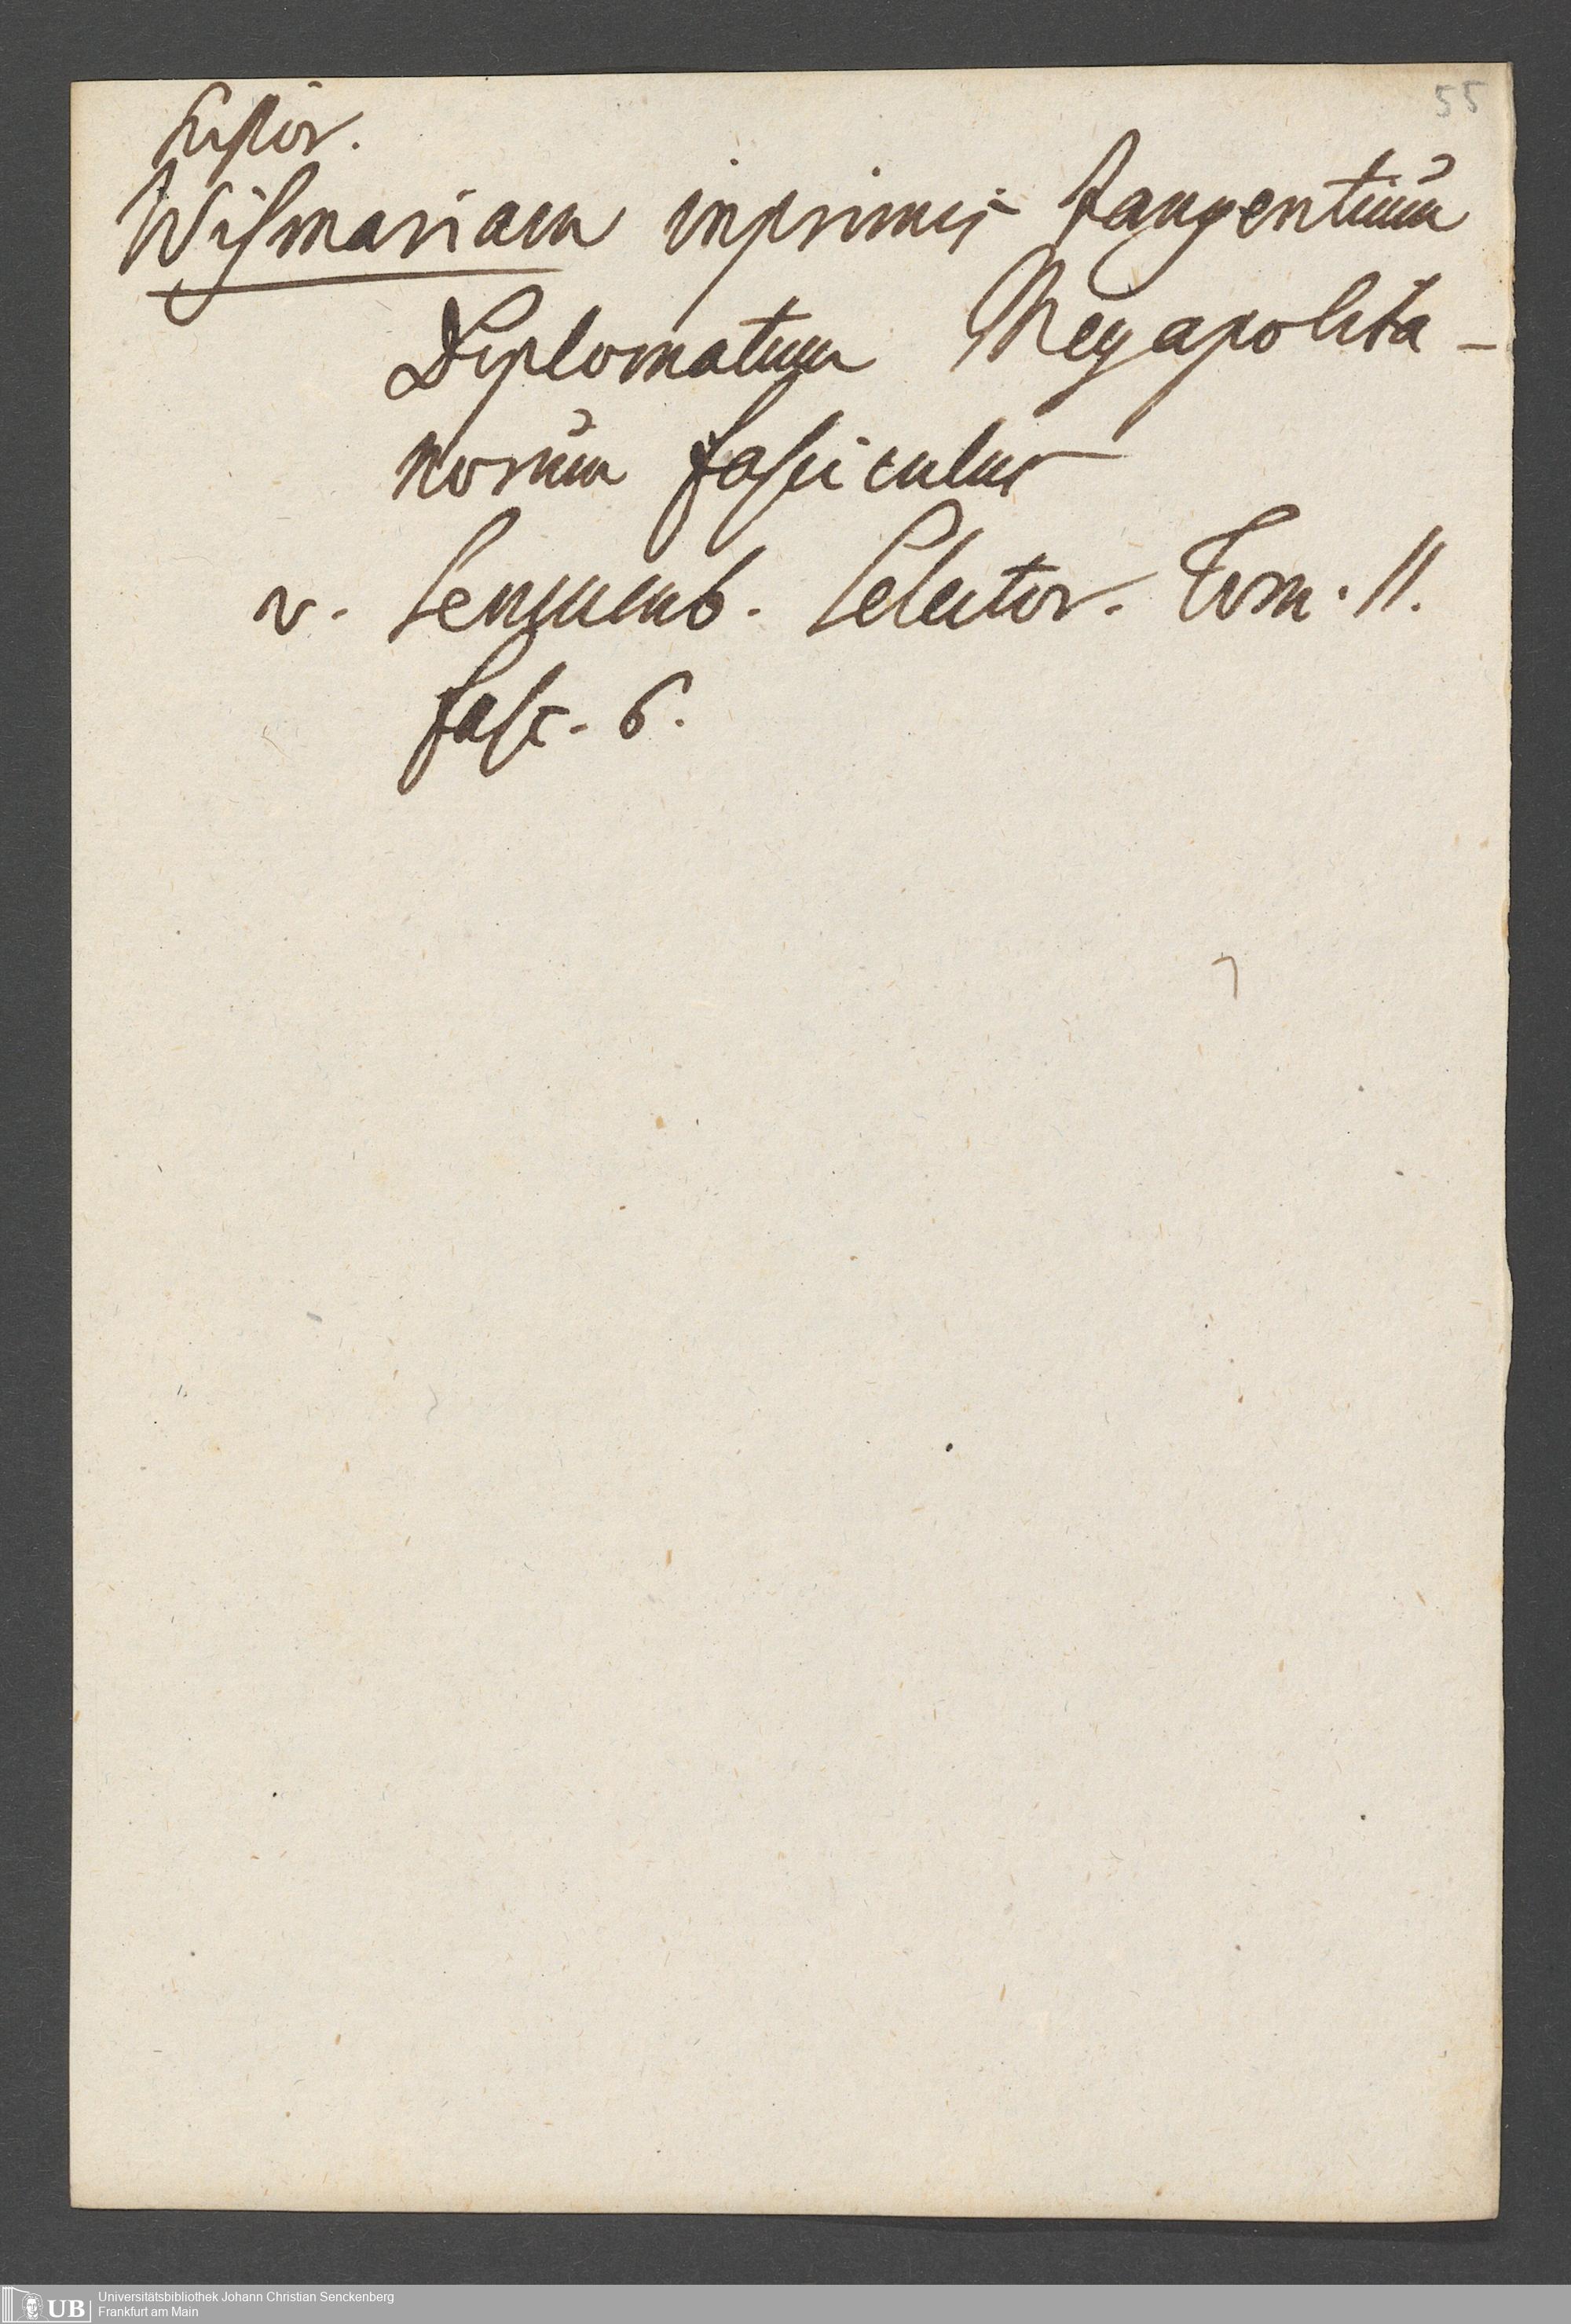 55
Histor.
Wiſmariam inprimis tangentium
Diplomatum Megapolita-
norum faſciculus
v. Senckenb. Selector. Tom. II.
faſc. 6.
UB Universitätsbibliothek Johann Christian Senckenberg
Frankfurt am Main